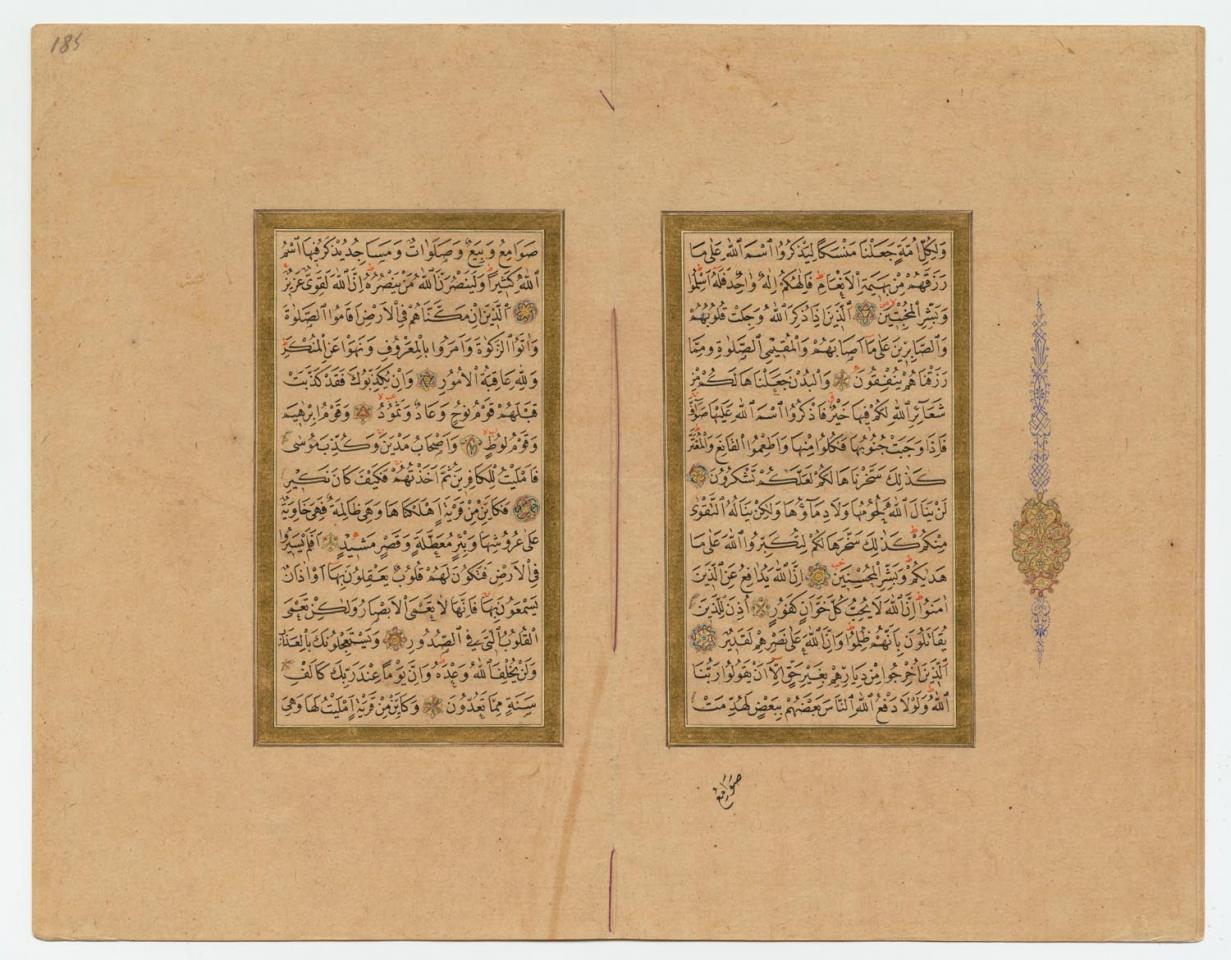 وَلِكُلِّ اُمَّةٍ جَعَلْنَا مَنْسَكًا لِيَذْكُرُوا اسْمَ اللّٰهِ عَلٰى مَا
رَزَقَهُمْ مِنْ بَهِيمَةِ الْاَنْعَامِ فَاِلٰهُكُمْ اِلٰهٌ وَاحِدٌ فَلَهُ اَسْلِمُوا
وَبَشِّرِ الْمُخْبِتِينَ الَّذِينَ اِذَا ذُكِرَ اللّٰهُ وَجِلَتْ قُلُوبُهُمْ
وَالصَّابِرِينَ عَلٰى مَا اَصَابَهُمْ وَالْمُقِيمِى الصَّلٰوةِ وَمِمَّا
رَزَقْنَاهُمْ يُنْفِقُونَ وَالْبُدْنَ جَعَلْنَاهَا لَكُمْ مِنْ
شَعَائِرِ اللّٰهِ لَكُمْ فِيهَا خَيْرٌ فَاذْكُرُوا اسْمَ اللّٰهِ عَلَيْهَا صَوَافَّ
فَاِذَا وَجَبَتْ جُنُوبُهَا فَكُلُوا مِنْهَا وَاَطْعِمُوا الْقَانِعَ وَالْمُعْتَرَّ
كَذٰلِكَ سَخَّرْنَاهَا لَكُمْ لَعَلَّكُمْ تَشْكُرُونَ
لَنْ يَنَالَ اللّٰهَ لُحُومُهَا وَلَا دِمَاؤُهَا وَلٰكِنْ يَنَالُهُ التَّقْوٰى
مِنْكُمْ كَذٰلِكَ سَخَّرَهَا لَكُمْ لِتُكَبِّرُوا اللّٰهَ عَلٰى مَا
هَدٰيكُمْ وَبَشِّرِ الْمُحْسِنِينَ اِنَّ اللّٰهَ يُدَافِعُ عَنِ الَّذِينَ
اٰمَنُوا اِنَّ اللّٰهَ لَا يُحِبُّ كُلَّ خَوَّانٍ كَفُورٍ اُذِنَ لِلَّذِينَ
يُقَاتَلُونَ بِاَنَّهُمْ ظُلِمُوا وَاِنَّ اللّٰهَ عَلٰى نَصْرِهِمْ لَقَدِيرٌ
الَّذِينَ اُخْرِجُوا مِنْ دِيَارِهِمْ بِغَيْرِ حَقٍّ اِلَّا اَنْ يَقُولُوا رَبُّنَا
اللّٰهُ وَلَوْلَا دَفْعُ اللّٰهِ النَّاسَ بَعْضَهُمْ بِبَعْضٍ لَهُدِّمَتْ
صَوَامِعُ
صَوَامِعُ وَبِيَعٌ وَصَلَوَاتٌ وَمَسَاجِدُ يُذْكَرُ فِيهَا اسْمُ
اللّٰهِ كَثِيرًا وَلَيَنْصُرَنَّ اللّٰهُ مَنْ يَنْصُرُهُ اِنَّ اللّٰهَ لَقَوِىٌّ عَزِيزٌ
الَّذِينَ اِنْ مَكَّنَّاهُمْ فِى الْاَرْضِ اَقَامُوا الصَّلٰوةَ
وَاٰتَوُا الزَّكٰوةَ وَاَمَرُوا بِالْمَعْرُوفِ وَنَهَوْا عَنِ الْمُنْكَرِ
وَلِلّٰهِ عَاقِبَةُ الْاُمُورِ وَاِنْ يُكَذِّبُوكَ فَقَدْ كَذَّبَتْ
قَبْلَهُمْ قَوْمُ نُوحٍ وَعَادٌ وَثَمُودُ وَقَوْمُ اِبْرٰهِيمَ
وَقَوْمُ لُوطٍ وَاَصْحَابُ مَدْيَنَ وَكُذِّبَ مُوسٰى
فَاَمْلَيْتُ لِلْكَافِرِينَ ثُمَّ اَخَذْتُهُمْ فَكَيْفَ كَانَ نَكِيرِ
فَكَاَيِّنْ مِنْ قَرْيَةٍ اَهْلَكْنَاهَا وَهِىَ ظَالِمَةٌ فَهِىَ خَاوِيَةٌ
عَلٰى عُرُوشِهَا وَبِئْرٍ مُعَطَّلَةٍ وَقَصْرٍ مَشِيدٍ اَفَلَمْ يَسِيرُوا
فِى الْاَرْضِ فَتَكُونَ لَهُمْ قُلُوبٌ يَعْقِلُونَ بِهَا اَوْ اٰذَانٌ
يَسْمَعُونَ بِهَا فَاِنَّهَا لَا تَعْمَى الْاَبْصَارُ وَلٰكِنْ تَعْمَى
الْقُلُوبُ الَّتِى فِى الصُّدُورِ وَيَسْتَعْجِلُونَكَ بِالْعَذَابِ
وَلَنْ يُخْلِفَ اللّٰهُ وَعْدَهُ وَاِنَّ يَوْمًا عِنْدَ رَبِّكَ كَاَلْفِ
سَنَةٍ مِمَّا تَعُدُّونَ وَكَاَيِّنْ مِنْ قَرْيَةٍ اَمْلَيْتُ لَهَا وَهِىَ